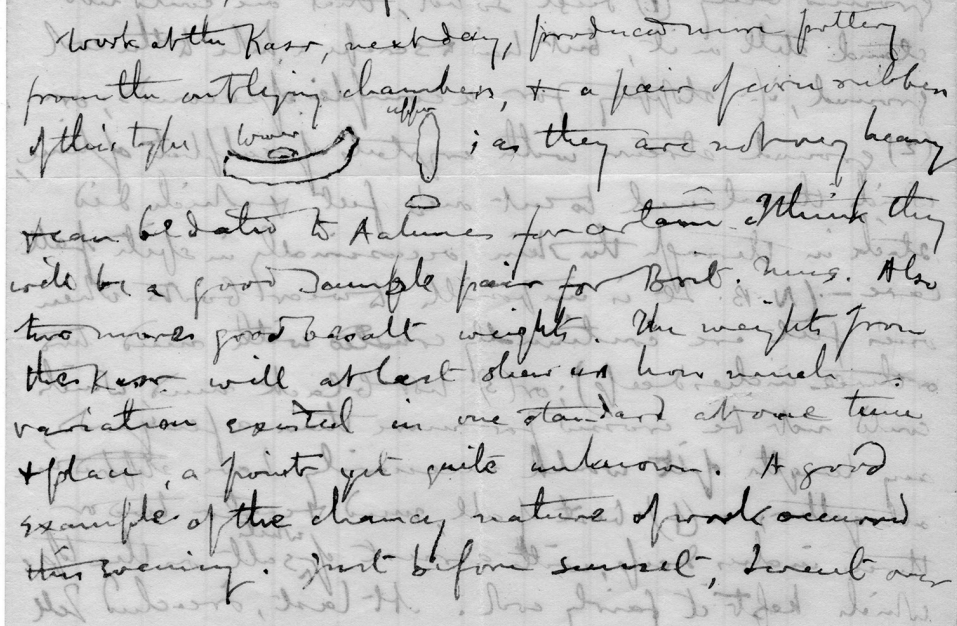 Work at the Kasr, next day, produced more pottery
from the outlying chambers, & a pair of corn rubbers
upper
of this type lower ; as they are not very heavy
& can be dated to Aahmes for certain I think they
will be a good sample pair for Brit. Mus. Also
two more good basalt weights. The weights from
the Kasr will at last shew us how much
variation existed in one standard at one time
& place, a point yet quite unknown. A good
example of the chancy nature of work occurred
this evening. Just before sunset, I went over